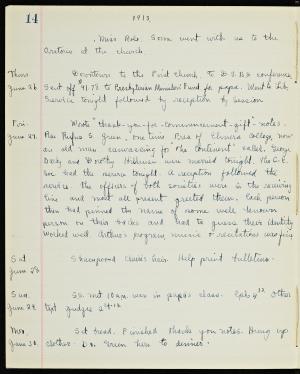 14
1913
Miss Rob. Soon went with us to the
Oratorio at the church.
Thurs
June 26
Downtown to the First Church, to D.V.B.S. conference,
Sent off $41.78 to Presbyterian Ministers' Fund for papa. Went to Lib.
Service tonight followed by reception by session
Fri.
June 27.
Wrote "thank-you-for-commencement-gift"-notes.
Rev. Rufus S. Green, one time Pres of Elmira College, now
an old man canvassing for "The Continent" called. George
and Dorothy were married tonight. The C.E.
soc had the service tonight. A reception followed the
service. The officers of both societies were in the receiving
line and most all present greeted them. Each person
then had pinned the name of some well-known
person on their backs and had to guess their identity
Worked well. Arthur's program, music & recitations
Sat
June 28.
Shampooed hair. Help print bulletins.
Sun.
June 29.
S.S. met 10 a.m. was in papa's class. Eph 6:12. Other
text Judges
Mon.
June 30.
Set bread. Finished thank you notes. Hung up
clothes. Dr. Green here to dinner.